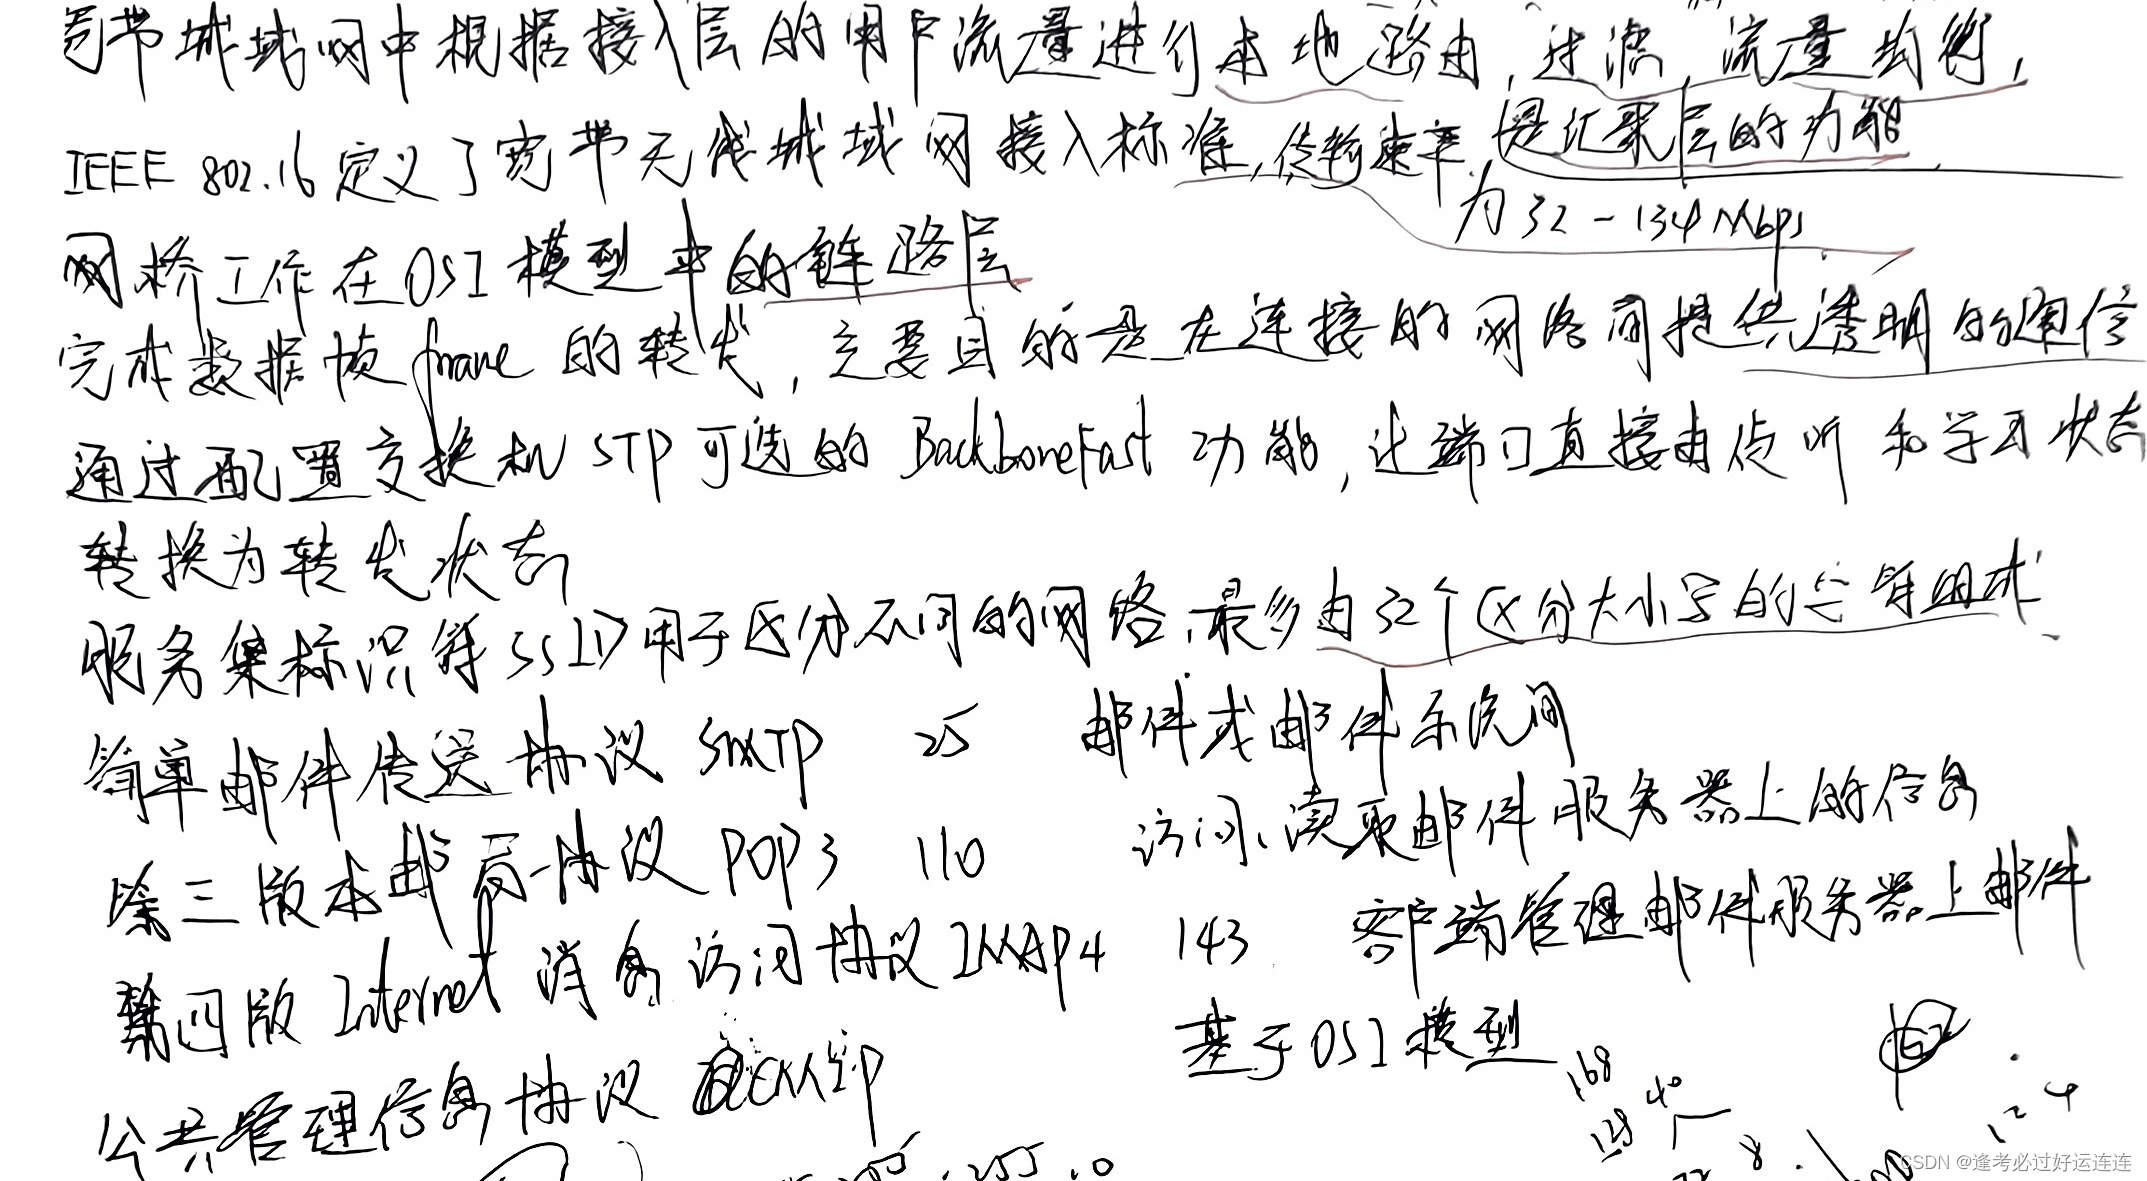 宽带城域网中根据接入层的用户流量进行本地路由，过滤，流量均衡，
是汇聚层的功能
IEEE 802.16定义了宽带无线城域网接入标准，传输速率
为32-134Mbps.
网桥工作在OSI模型中的链路层
完成数据帧frame的转发，主要目的是在连接的网络间提供透明的通信
通过配置交换机STP可选的BackboneFast功能，让端口直接由侦听和学习状态
转换为转发状态
服务集标识符SSID用于区分不同的网络，最多由32个区分大小写的字符组成.
简单邮件传送协议 SMTP 25 邮件或邮件系统间
第三版本邮局协议 POP3 110 访问、读取邮件服务器上的信息
第四版Internet消息访问协议IMAP4 143 客户端管理邮件服务器上邮件
公共管理信息协议 CMIP 基于OSI模型
168
128
40
8
12
4
255.0
CSDN @逢考必过好运连连